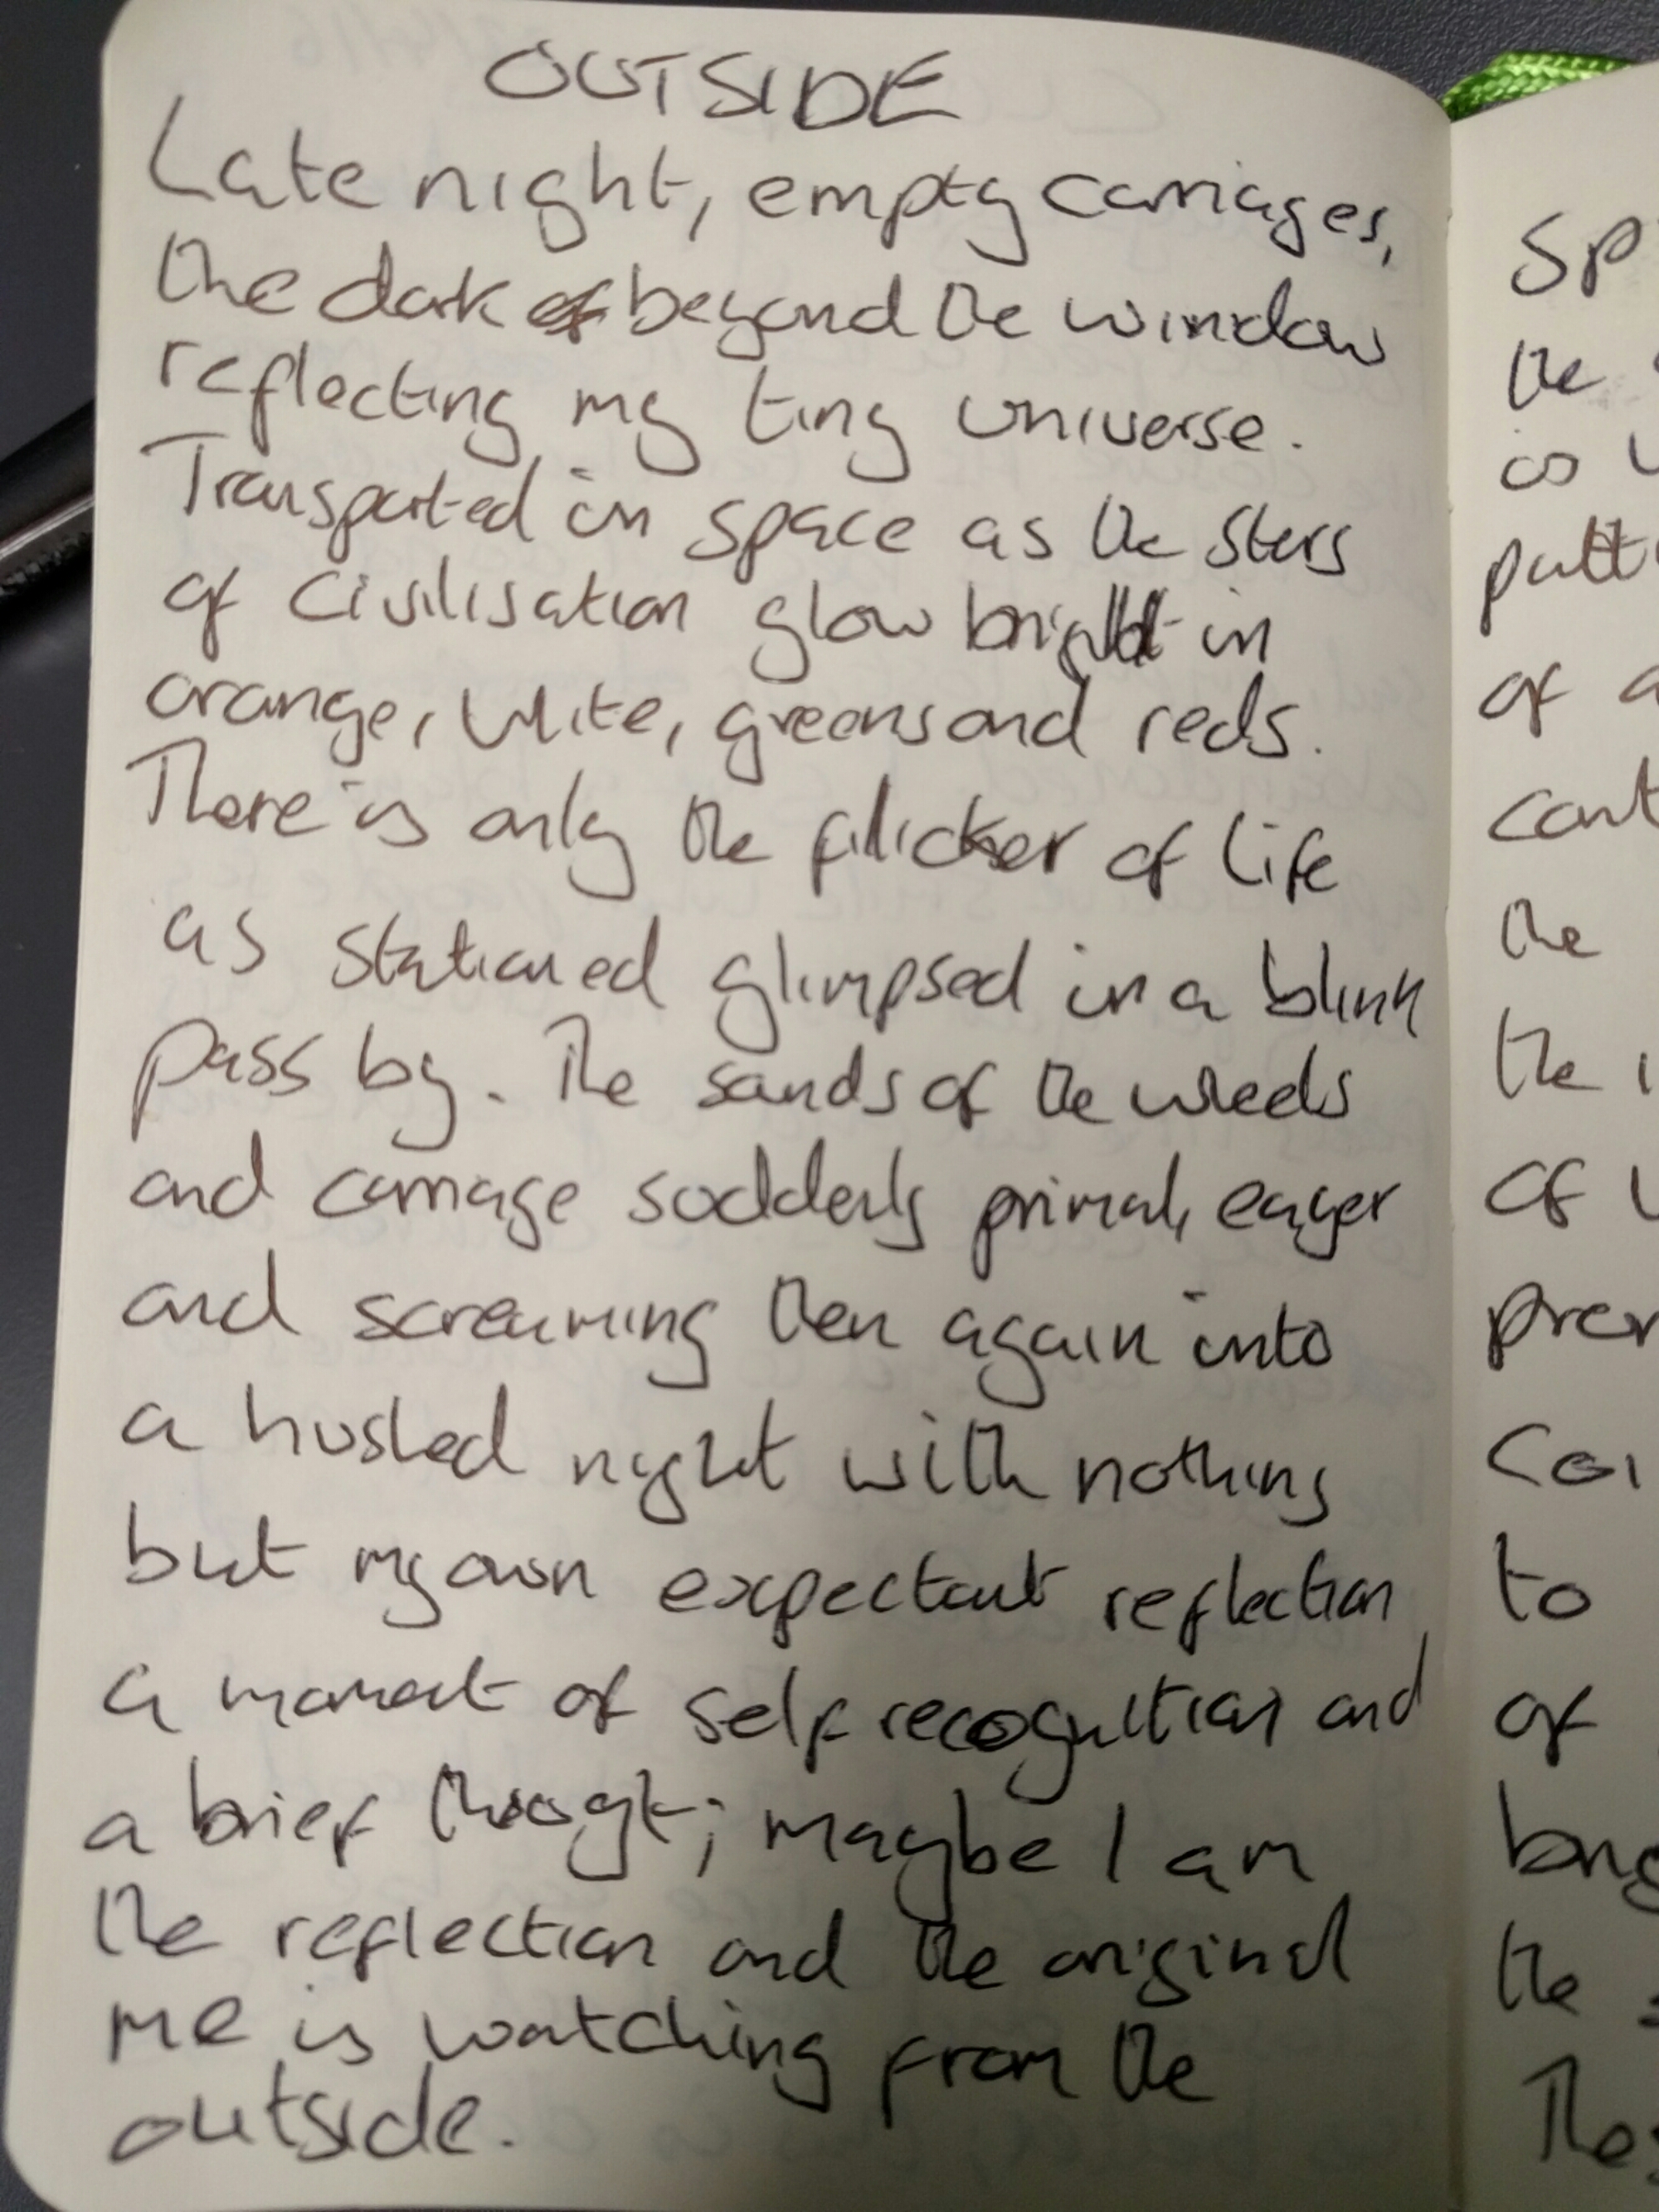 OUTSIDE
Late night, empty carriages,
the dark of beyond the window
reflecting my tiny universe.
Transported in space as the stars
of civilisation glow bright in
orange, white, greens and reds.
There is only the flicker of life
as stationed glimpsed in a blink
pass by. The sands of the wheels
and carriage suddenly primal, eager
and screaming then again into
a hushed night with nothing
but my own expectant reflection
a moment of self recognition and
a brief thought; maybe I am
the reflection and the original
me is watching from the
outside.
SP
the
is
patt
of a
cont
the
the
of
prer
to
of
the